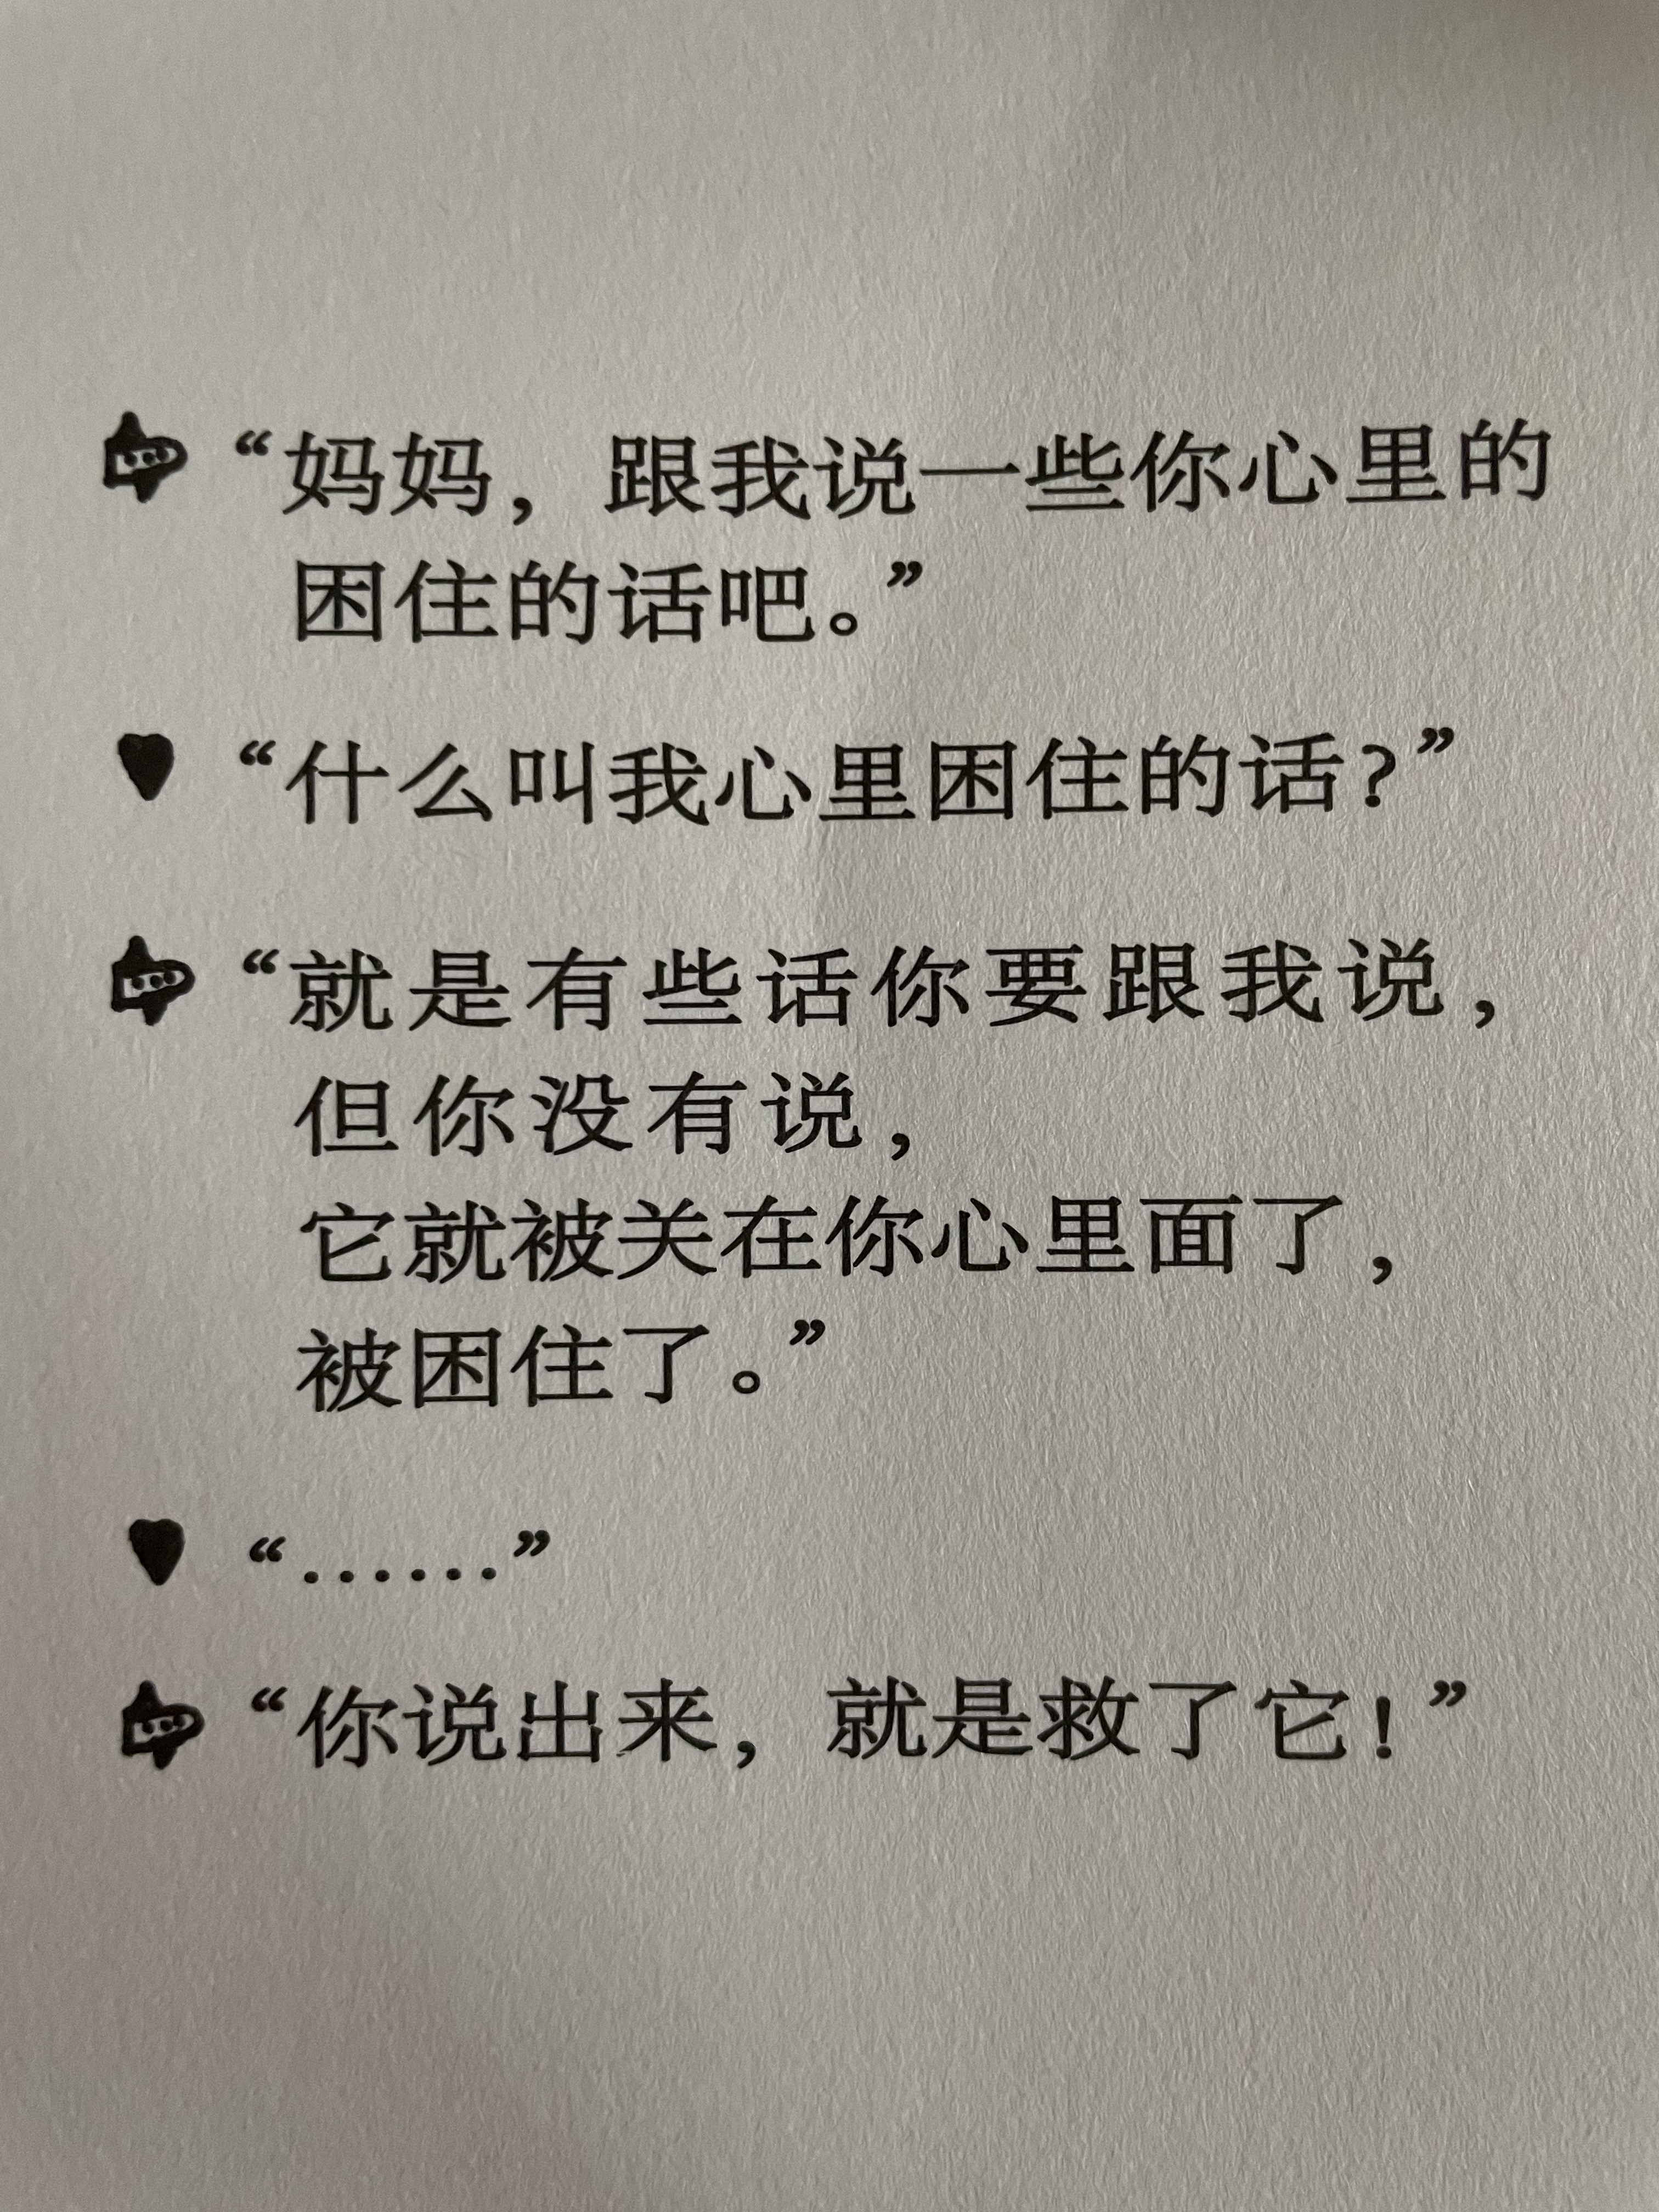 “妈妈，跟我说一些你心里的
困住的话吧。”
“什么叫我心里困住的话？”
“就是有些话你要跟我说，
但你没有说，
它就被关在你心里面了，
被困住了。”
“……”
“你说出来，就是救了它！”